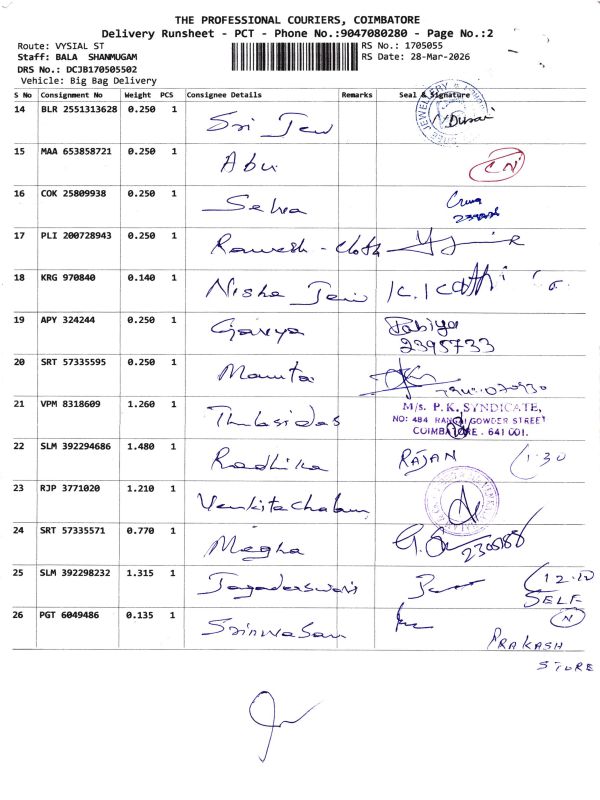 THE PROFESSIONAL COURIERS, COIMBATORE
Delivery Runsheet - PCT - Phone No.:9047080280 - Page No.:2
Route: VYSIAL ST RS No.: 1705055
Staff: BALA SHANMUGAM RS Date: 28-Mar-2026
DRS No.: DCJB170505502
Vehicle: Big Bag Delivery
S No Consignment No Weight PCS Consignee Details Remarks Seal & Signature
14 BLR 2551313628 0.250 1 Sri Jew Durai
15 MAA 653858721 0.250 1 Abu CN
16 COK 25809938 0.250 1 Selva
17 PLI 200728943 0.250 1 Ramesh - cloth
18 KRG 970840 0.140 1 Nisha Jew K. Kathi
19 APY 324244 0.250 1 Gavya Pabiya
2395733
20 SRT 57335595 0.250 1 Mamta
21 VPM 8318609 1.260 1 Thulasidas M/s. P.K. SYNDICATE,
NO: 484 RANGAI GOWDER STREET
COIMBATORE - 641 001.
22 SLM 392294686 1.480 1 Radhika RAJAN 1.30
23 RJP 3771020 1.210 1 Venkitachalam
24 SRT 57335571 0.770 1 Megha
25 SLM 392298232 1.315 1 Jagadeeswari 12.10
SELF
26 PGT 6049486 0.135 1 Srinivasan N
PRAKASH
STORE